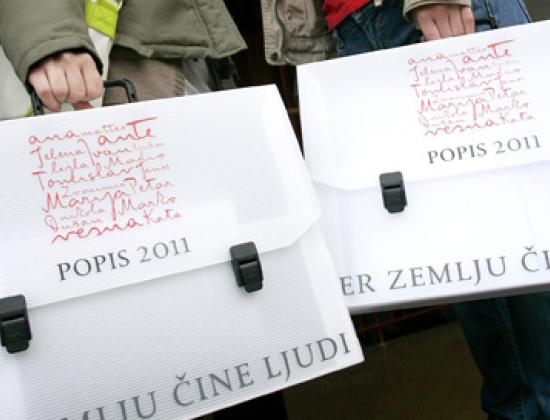 ana matteo ante
Jelena Ivan
lejla Mario
Tomislav
Marija Petar
nikola Marko
Dušan
vesna Kata
POPIS 2011
MLJU ČINE LJUDI
ana matteo ante
Jelena Ivan
lejla Mario
Tomislav
Marija Petar
nikola Marko
Dušan
vesna Kata
POPIS 2011
ER ZEMLJU ČI